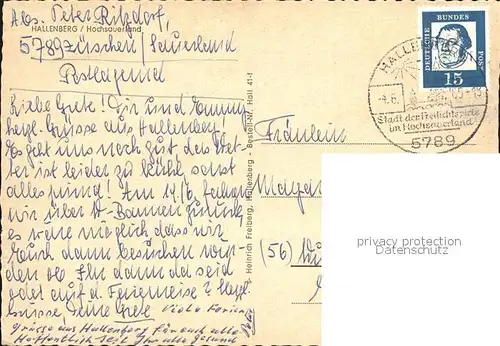 Abs. Peter Ritzdorf,
HALLENBERG / Hochsauerland
5789 Züschen / Sauerland
Postlagernd
Liebe Grete! Dir und Emmi
herzl. Grüsse aus Hallenberg!
Es geht uns noch gut das Wet-
ter ist leider zu kühl sonst
alles prima! Am 14/6 fahren
wir über zurück
es wäre möglich dass wir
Euch dann besuchen würden
ob Ihr dann da seid
oder auf d. Ferienreise? Herzl.
Grüsse Deine Grete Viele Ferien
grüsse aus Hallenberg für euch alle
Hoffentlich seit Ihr alle gesund
Peter
Heinrich Freiberg, Hallenberg - Bestell-Nr. Hall 41-f
Fräulein
(56)
DEUTSCHE BUNDESPOST
15
HALLENBERG
Stadt der Freilichtspiele
im Hochsauerland
5789
privacy protection
Datenschutz